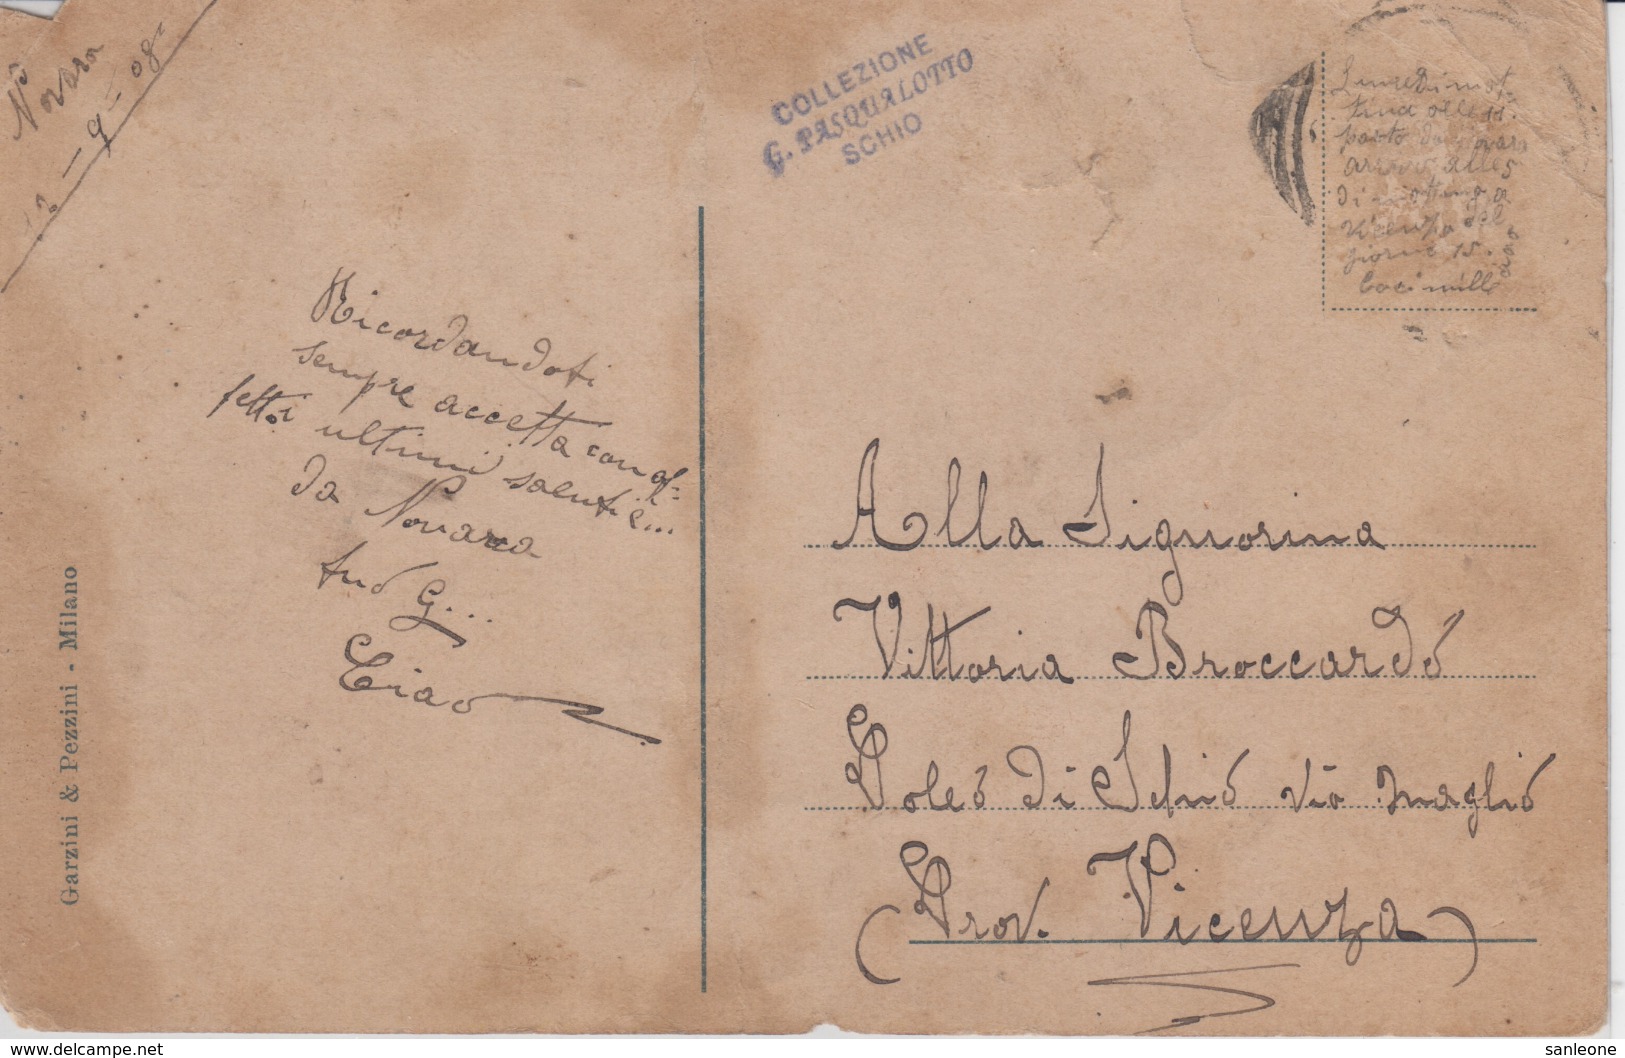 Novara
12-9-08
COLLEZIONE
G. PASQUALOTTO
SCHIO
Lunedi mat.
tina alle 11.
parto da Novara
arrivo alle 5
di mattina a
Vicenza del
giorno 15.
Baci mille
Ricordandoti
sempre accetta con af=
fettoi ultimi saluti e...
da Novara
tuo G...
Ciao
Alla Signorina
Vittoria Broccardo
di Schio via Maglio
(Prov. Vicenza)
Garzini & Pezzini - Milano
www.delcampe.net
sanleone